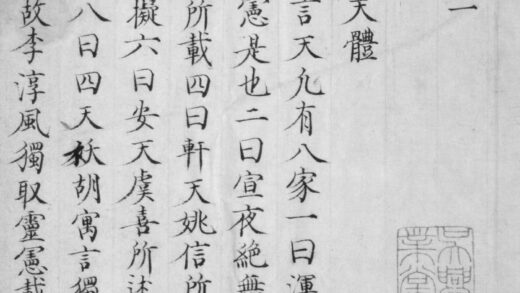 一
天體
言天凢有八家一曰渾
憲是也二曰宣夜絶無
所載四曰軒天姚信所
擬六曰安天虞喜所述
八曰四天妖胡寓言獨
故李淳風獨取靈憲
吳興
業堂